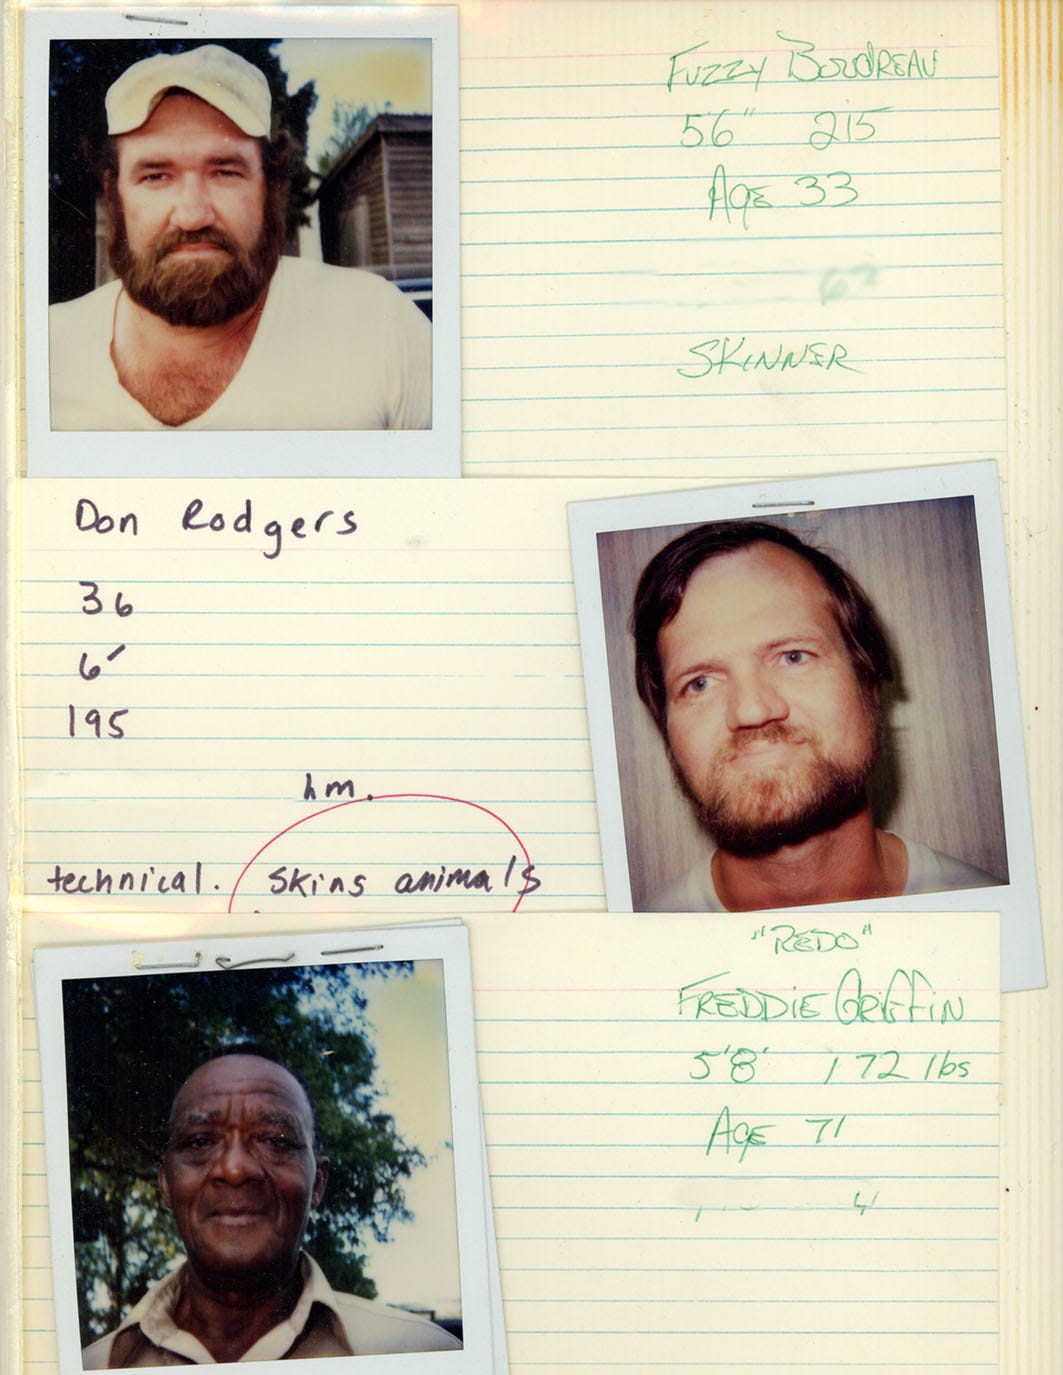 Fuzzy Boudreau
5'6" 215
Age 33
Skinner
Don Rodgers
36
6'
195
hm.
technical. Skins animals
"REDO"
FREDDIE GRIFFIN
5'8' 172 lbs
Age 71